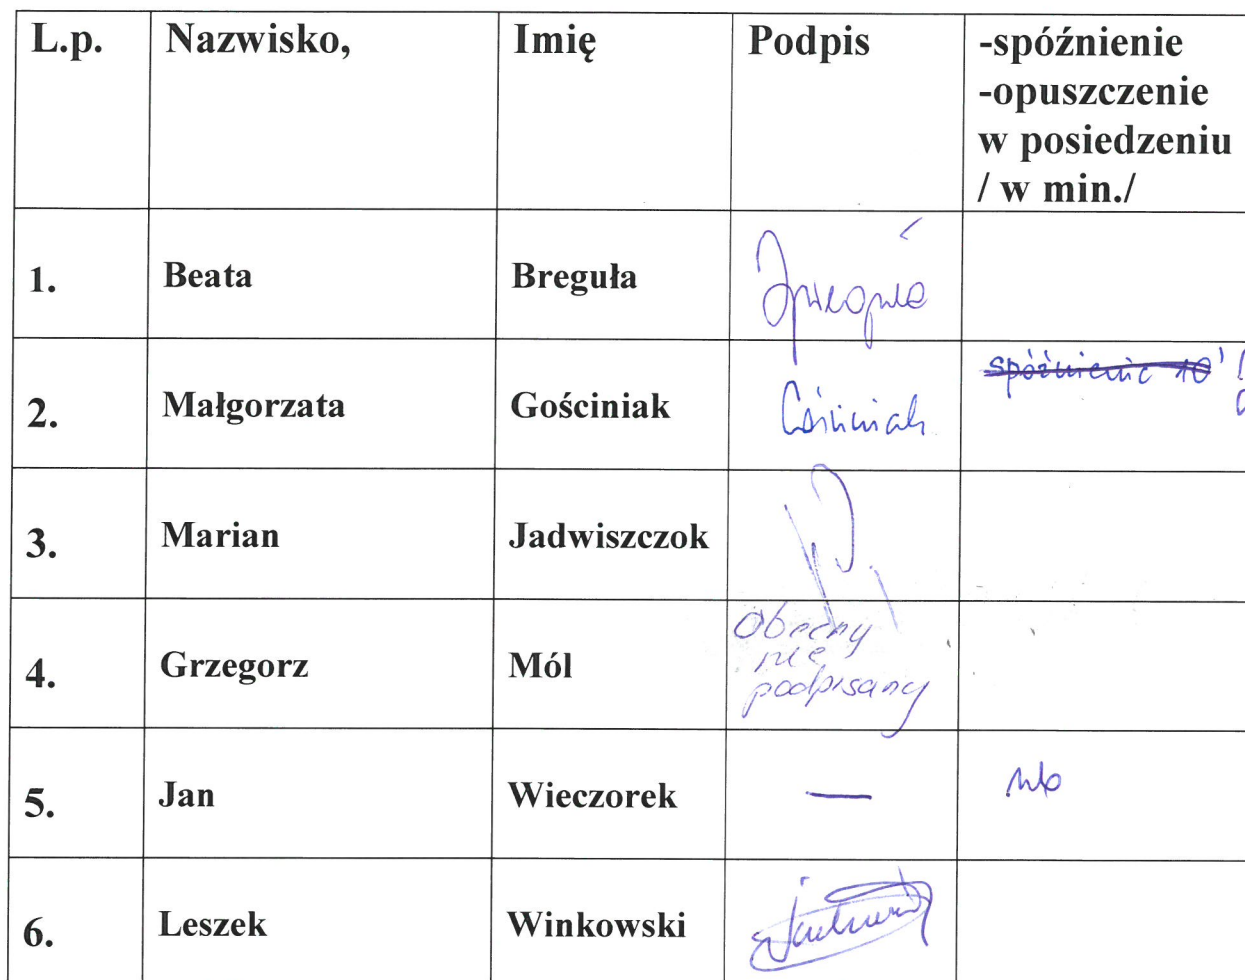 L.p. Nazwisko, Imię Podpis -spóźnienie
-opuszczenie
w posiedzeniu
/ w min./
1. Beata Breguła
2. Małgorzata Gościniak Gościniak spóźnienie 10'
3. Marian Jadwiszczok
4. Grzegorz Mól Obecny
nie
podpisany
5. Jan Wieczorek — nb
6. Leszek Winkowski